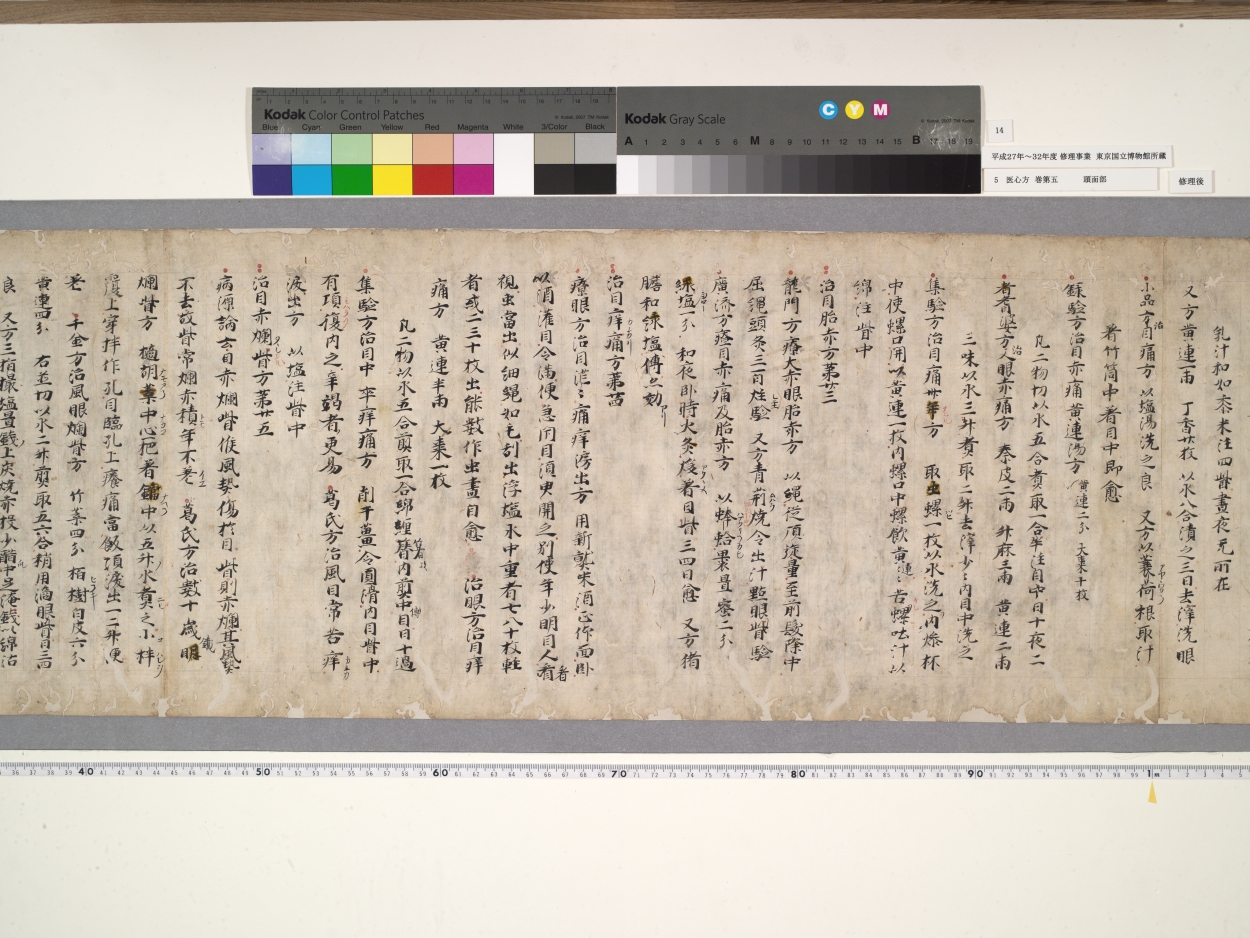 Kodak Color Control Patches
Blue Cyan Green Yellow Red Magenta White 3/Color Black
Kodak Gray Scale
C Y M
A 1 2 3 4 5 6 M 8 9 10 11 12 13 14 15 B 17 18 19
14
平成27年~32年度 修理事業 東京国立博物館所蔵
5 医心方 巻第五 頭面部
修理後
乳汁和如黍米注四眥晝夜元所在
又方黄連一兩 丁香廿枚 以水八合漬之三日去滓洗眼
小品方治目痛方 以塩湯洗之良 又方以蘘荷根取汁
著竹筒中著目中即愈
録驗方治目赤痛黄連湯方 黄連二分 大棗十枚
凡二物切以水五合煮取一合半注目中日十夜二
耆婆方治人眼赤痛方 秦皮二兩 升麻三兩 黄連二兩
三味以水三升煮取二升去滓少々内目中洗之
集驗方治目痛卅年方 取生螺一枚以水洗之内燥杯
中使螺口開以黄連一枚内螺口中螺飲黄連々苦螺吐汁以
綿注眥中
治目胎赤方第廿三
龍門方療大赤眼胎赤方 以繩從頂旋量至前髮際中
屈繩頭灸三百炷驗 又方青荊燒令出汁點眼眥驗
廣濟方療目赤痛及胎赤方 以蜯蛤裹置蜜二分
緑塩一分 和夜卧時火灸煖著目眥三四日愈 又方猪
膽和緑塩傅之効
治目痒痛方第廿四
療眼方治目淮々痛痒滂出方 用新熟米酒正作面卧
以酒灌目令滿便急閇目須臾開之別使年少明目人看
視虫當出似細繩如毛刮出浮塩水中重者七八十枚輕
者或二三十枚出能數作虫盡自愈 治眼方治目痒
痛方 黄連半兩 大棗一枚
凡二物以水五合煎取一合綿纏箸内煎中目日十過
集驗方治目中卒痒痛方 削干薑令圓滑内目眥中
有頃復内之辛竭者更易 葛氏方治風目常苦痒
淚出方 以塩注眥中
治目赤爛眥方第廿五
病源論云目赤爛眥候風熱傷於目眥則赤爛其風熱
不去故眥常爛赤積年不老 葛氏方治數十歳
爛眥方 中心 著 中以五升水煮之小
上穿拌作孔目臨孔上癢痛當 須淚出一二升便
老 千金方治風眼爛眥方 竹葉四分 栢樹白皮六分
黄連四分 右並切以水二升煎取五六合稍用滴眼眥日三
良 又方三指撮塩置錢上炭燒赤投少醋中